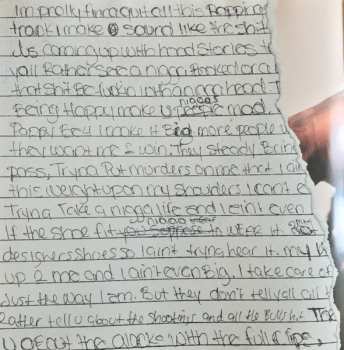 Im prolly finna quit all this Rapping
track i make sound like the shit
Us coming up with hood stories t
yall Rather see a nigga locked or d
that shit Be fuckin in
Being Happy make u niggas mad
Poppy Bou I make it Big more people
they want me 2 win. They steady Brin
pass, Tryna Put murders on me that I ain
this weight upon my shoulders I cant e
Tryna Take a nigga life and I eint even
If the shoe fit to were it.
designers shoes so I aint tryna hear it. my
up 2 me and I aint even Big. I take care of
Just the way I am. But they don't tell yall all
Ratter tell u about the Shootings and all the Bullshit The
with the full